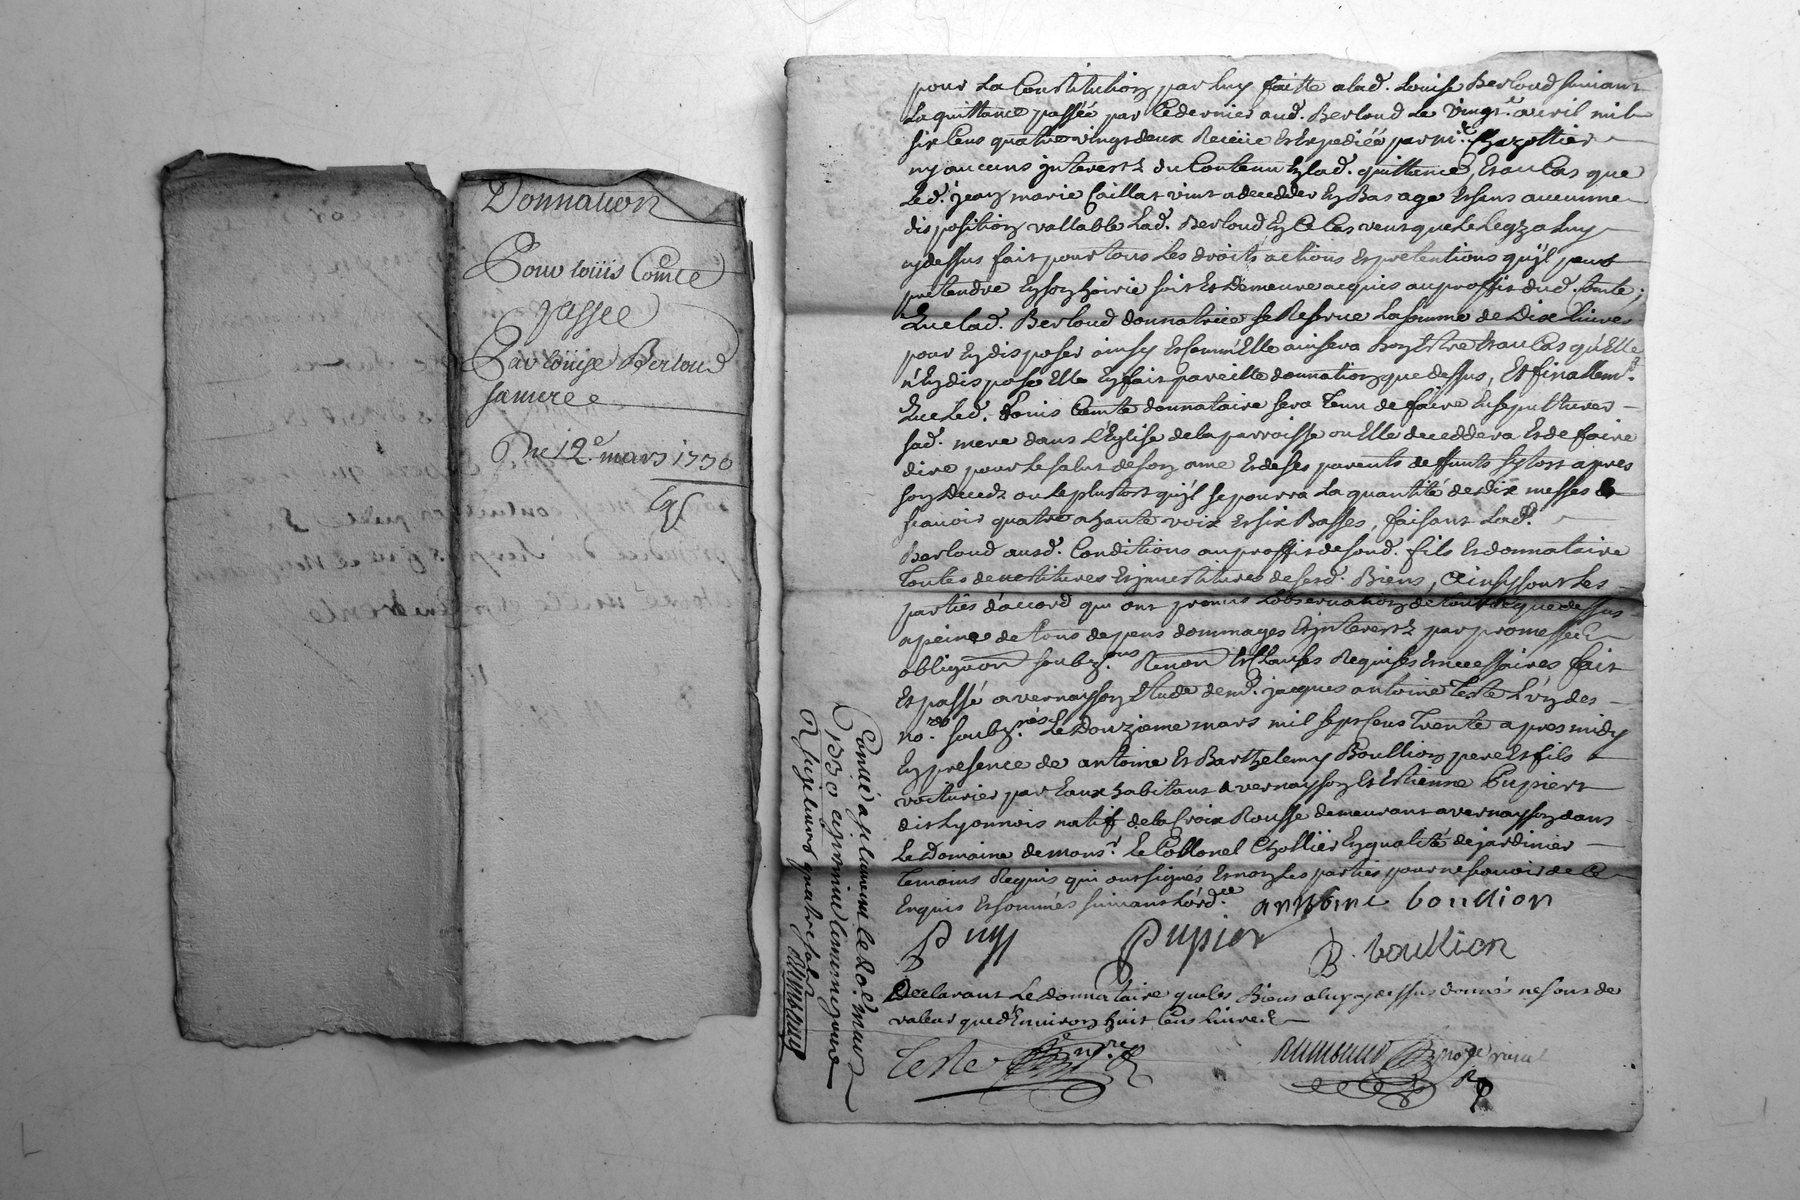 Donnation
Pour loüis Comte
passée
Par loüise Berloud
sa mere
Du 12e. mars 1730
pour La Constitution par luy faitte a lad. Louise Berloud suivant
La quittance passée par Ce dernier aud. Berloud Le vingte. avril mil
six Cens quatre vingt deux Receüe Et Expediée par mr. Chazottier
ny aucuns jnterestz du Contenu En lad. quittance, Et au Cas que
Led. jean marie Caillat vint a decedder En Bas age Et sans aucunne
disposition vallable Lad. Berloud En Ce Cas veut que Le Legz a luy
cy dessus fait pour tous Les droits actions Et pretentions qu'jl peut
pretendre En son hoirie soit Et Demeure acquis au proffit dud. Comte;
Que lad. Berloud donnatrice se Reserve La somme de Dix Livres
pour En disposer ainsy Et Comm'Elle avisera Bon Estre Et au Cas qu'Elle
n'En dispose Elle En fait pareille donnation que dessus, Et finallemt.
Que Led. Loüis Comte donnataire sera Tenu de faire Ensepulturer
sad. mere dans L'Eglise de la parroisse ou Elle deceddera Et de faire
dire pour Le salut de son ame Et de ses parents deffunts sytost apres
son decedz ou Le plustost qu'jl se pourra La quantité de Dix messes
scavoir quatre a haute voix Et six Basses, faisant Lad.
Berloud ausd. Conditions au proffit de sond. fils Et donnataire
Toutes devestitures Et jnvestitures de sesd. Biens, Ainsy sont Les
parties d'accord qui ont promis L'observation de tout Ce que dessus
a peine de tous depens dommages Et jnterestz par promesse
obligaon soubzons. Renon Et Clauses Requises Et necessaires fait
Et passé a vernayson Etude de me. jacques antoine Teste L'un des
nores. soubznés. Le Douzieme mars mil sept Cens Trente apres midy
En presence de antoine Et Barthelemy Boullion pere Et fils
voituriers par Eaux habitant a vernayson Et Estienne Pupier
dit Lyonnois natif de la Croix Rousse demeurant a vernayson dans
Le Domaine de monsr. Le Collonel Chollier En qualité de jardinier
Temoins Requis qui ont signés Et non Les parties pour ne scavoir de Ce
Enquis Et sommés suivant L'ordce.
antoine boullion
Puy
pupier
B. boullion
Declarant Le donnataire que les Biens a luy cy dessus donnés ne sont de
valeur que d'Environ huit Cens Livres
Teste nre
Rimbaud nore Royal
Conllé a st. Laurent le 20e. mars
1730
Reçu neuf livres quatre sols
Rimbaud